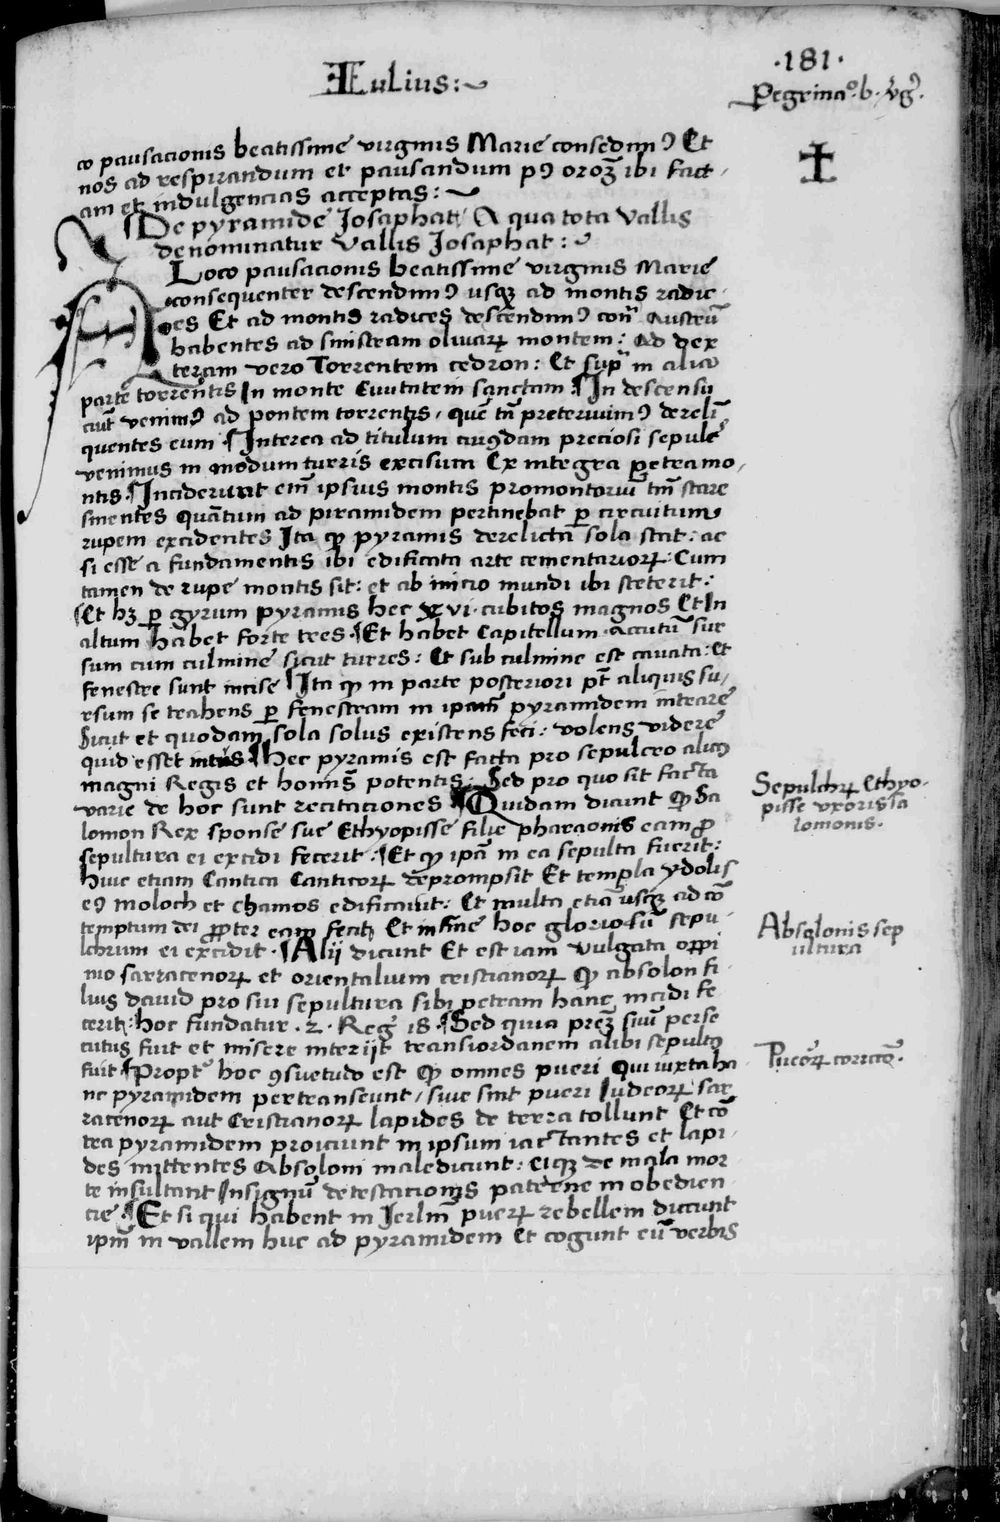 Iulius:
·181·
Peregrinacō. b. v̄gīs.
co pausacionis beatissime virginis Marie consedimꝰ Et
nos ad respirandum et pausandum pꝰ oroꝫ ibi fact,
am et indulgencias acceptas:
¶De pyramide Josaphat, A qua tota Vallis
denominatur Vallis Josaphat:
A Loco pausacionis beatissime virginis Marie
consequenter descendimꝰ usqꝫ ad montis radic,
es Et ad montis radices descendimꝰ conͭ Austrū
habentes ad sinistram olivaꝝ montem: Ad dex
teram vero Torrentem cedron: Et supͣ in alia
parte torrentis In monte Civitatem sanctam ¶In descensu
aūt venimꝰ ad pontem torrentis, quē tn̄ preterivimꝰ dereli͞
quentes eum ¶Interea ad titulum cuiꝰdam preciosi sepulcͥ
venimus in modum turris excisum Ex integra petra mo,
ntis ¶Inciderunt em̄ ipsius montis promontoriū tm̄ stare
sinentes quātum ad piramidem pertinebat ꝑ circuitum
rupem excidentes Ita ꝙ pyramis derelicta sola stat: ac
si esset a fundamentis ibi edificata arte cementarioꝝ: Cum
tamen de rupe montis sit: et ab inicio mundi ibi steterit:
¶Et hꝫ ꝑ gyrum pyramis hec xvi cubitos magnos Et In
altum habet forte tres ¶Et habet Capitellum accutū sur
sum cum culmine sicut turres: Et sub culmine est cavata: et
fenestre sunt incise ¶Ita ꝙ in parte posteriori pōt aliquis su,
rsum se trahens ꝑ fenestram in ipam̄ pyramidem intrare
Sicut et quodam sola solus existens feci: volens videre
quid esset intus ¶Hec pyramis est facta pro sepulcro alicꝰ
magni Regis et hominis potentis: Sed pro quo sit facta
varie de hoc sunt recitaciones ¶Quidam dicunt ꝙ Sa
lomon Rex sponse sue Ethyopisse filie pharaonis eam ꝓ
sepultura ei excidi fecerit: ¶Et ꝙ ipā in ea sepulta fuerit:
huic etiam Cantica Canticoꝝ deprompsit Et templa ydolis
eꝰ moloch et chamos edificavit: Et multa etiā usqꝫ ad cō
temptum dei ꝓpter eam fecit, Et in fine hoc gloriosū sepu,
lchrum ei excidit ¶Alij dicunt Et est iam vulgata oppi
nio sarracenoꝝ et orientalium cristianoꝝ ꝙ absolon fi,
lius david pro sui sepultura sibi petram hanc incidi fe
cerit: hoc fundatur .2. Regꝫ 18. ¶Sed quia preꝫ suū perse
cutus fuit et misere interijt transiordanem alibi sepultꝰ
fuit ¶Proptͤ hoc ꝯsuetudo est ꝙ omnes pueri Qui iuxta ha
nc pyramidem pertranseunt, sive sint pueri Iudeoꝝ sar
racenoꝝ aut Cristianoꝝ lapides de terra tollunt Et cō
tra pyramidem proiciunt in ipsum iactantes et lapi,
des mittentes Absoloni maledicunt: Eiqꝫ de mala mor
te insultant In signum detestacionis paterne inobedien
cie ¶Et si qui habent in Jerlm̄ pueꝝ rebellem ducunt
ipm̄ in vallem huc ad pyramidem Et cogunt eū verbis
Sepulchꝝ Ethyo,
pisse uxoris sa
lomonis.
Absolonis sep
ultura
Pueroꝝ corrictō.